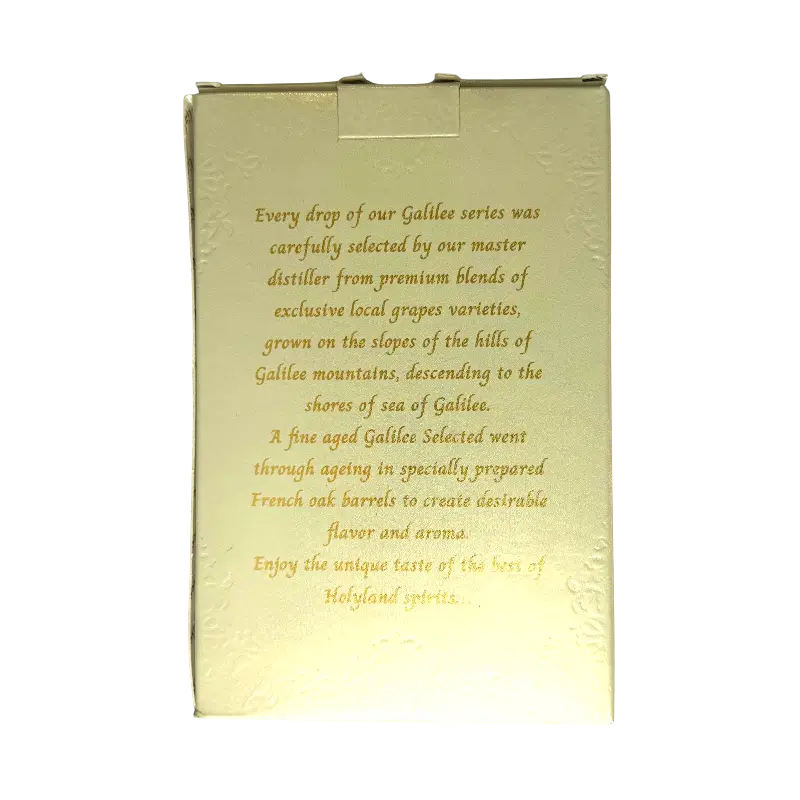 Every drop of our Galilee series was
carefully selected by our master
distiller from premium blends of
exclusive local grapes varieties,
grown on the slopes of the hills of
Galilee mountains, descending to the
shores of sea of Galilee.
A fine aged Galilee Selected went
through ageing in specially prepared
French oak barrels to create desirable
flavor and aroma.
Enjoy the unique taste of the best of
Holyland spirits...